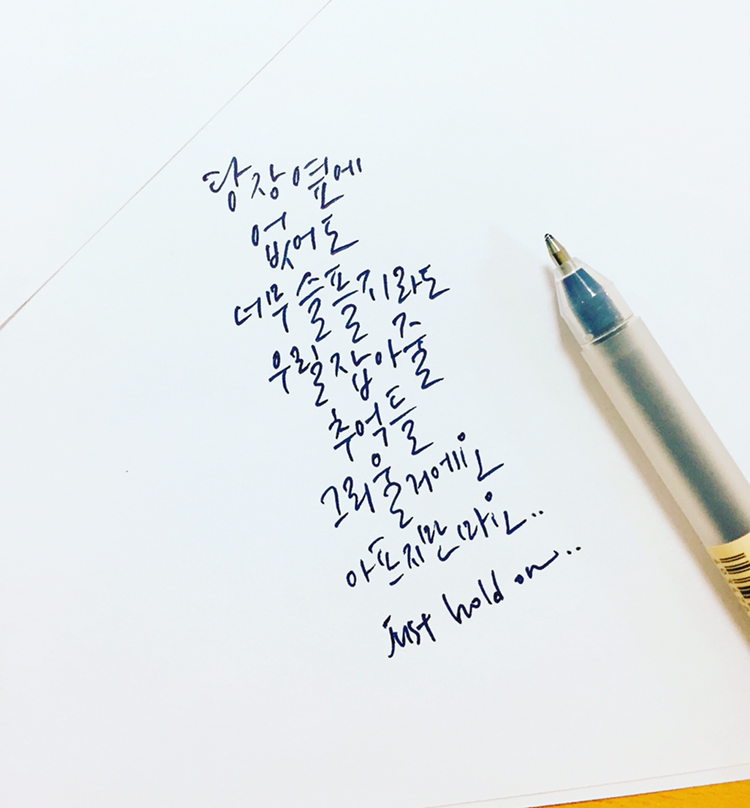 당장 옆에
없어도
너무 슬플지라도
우릴 잡아줄
추억들
그리울거에요
아프지만 마요..
just hold on..